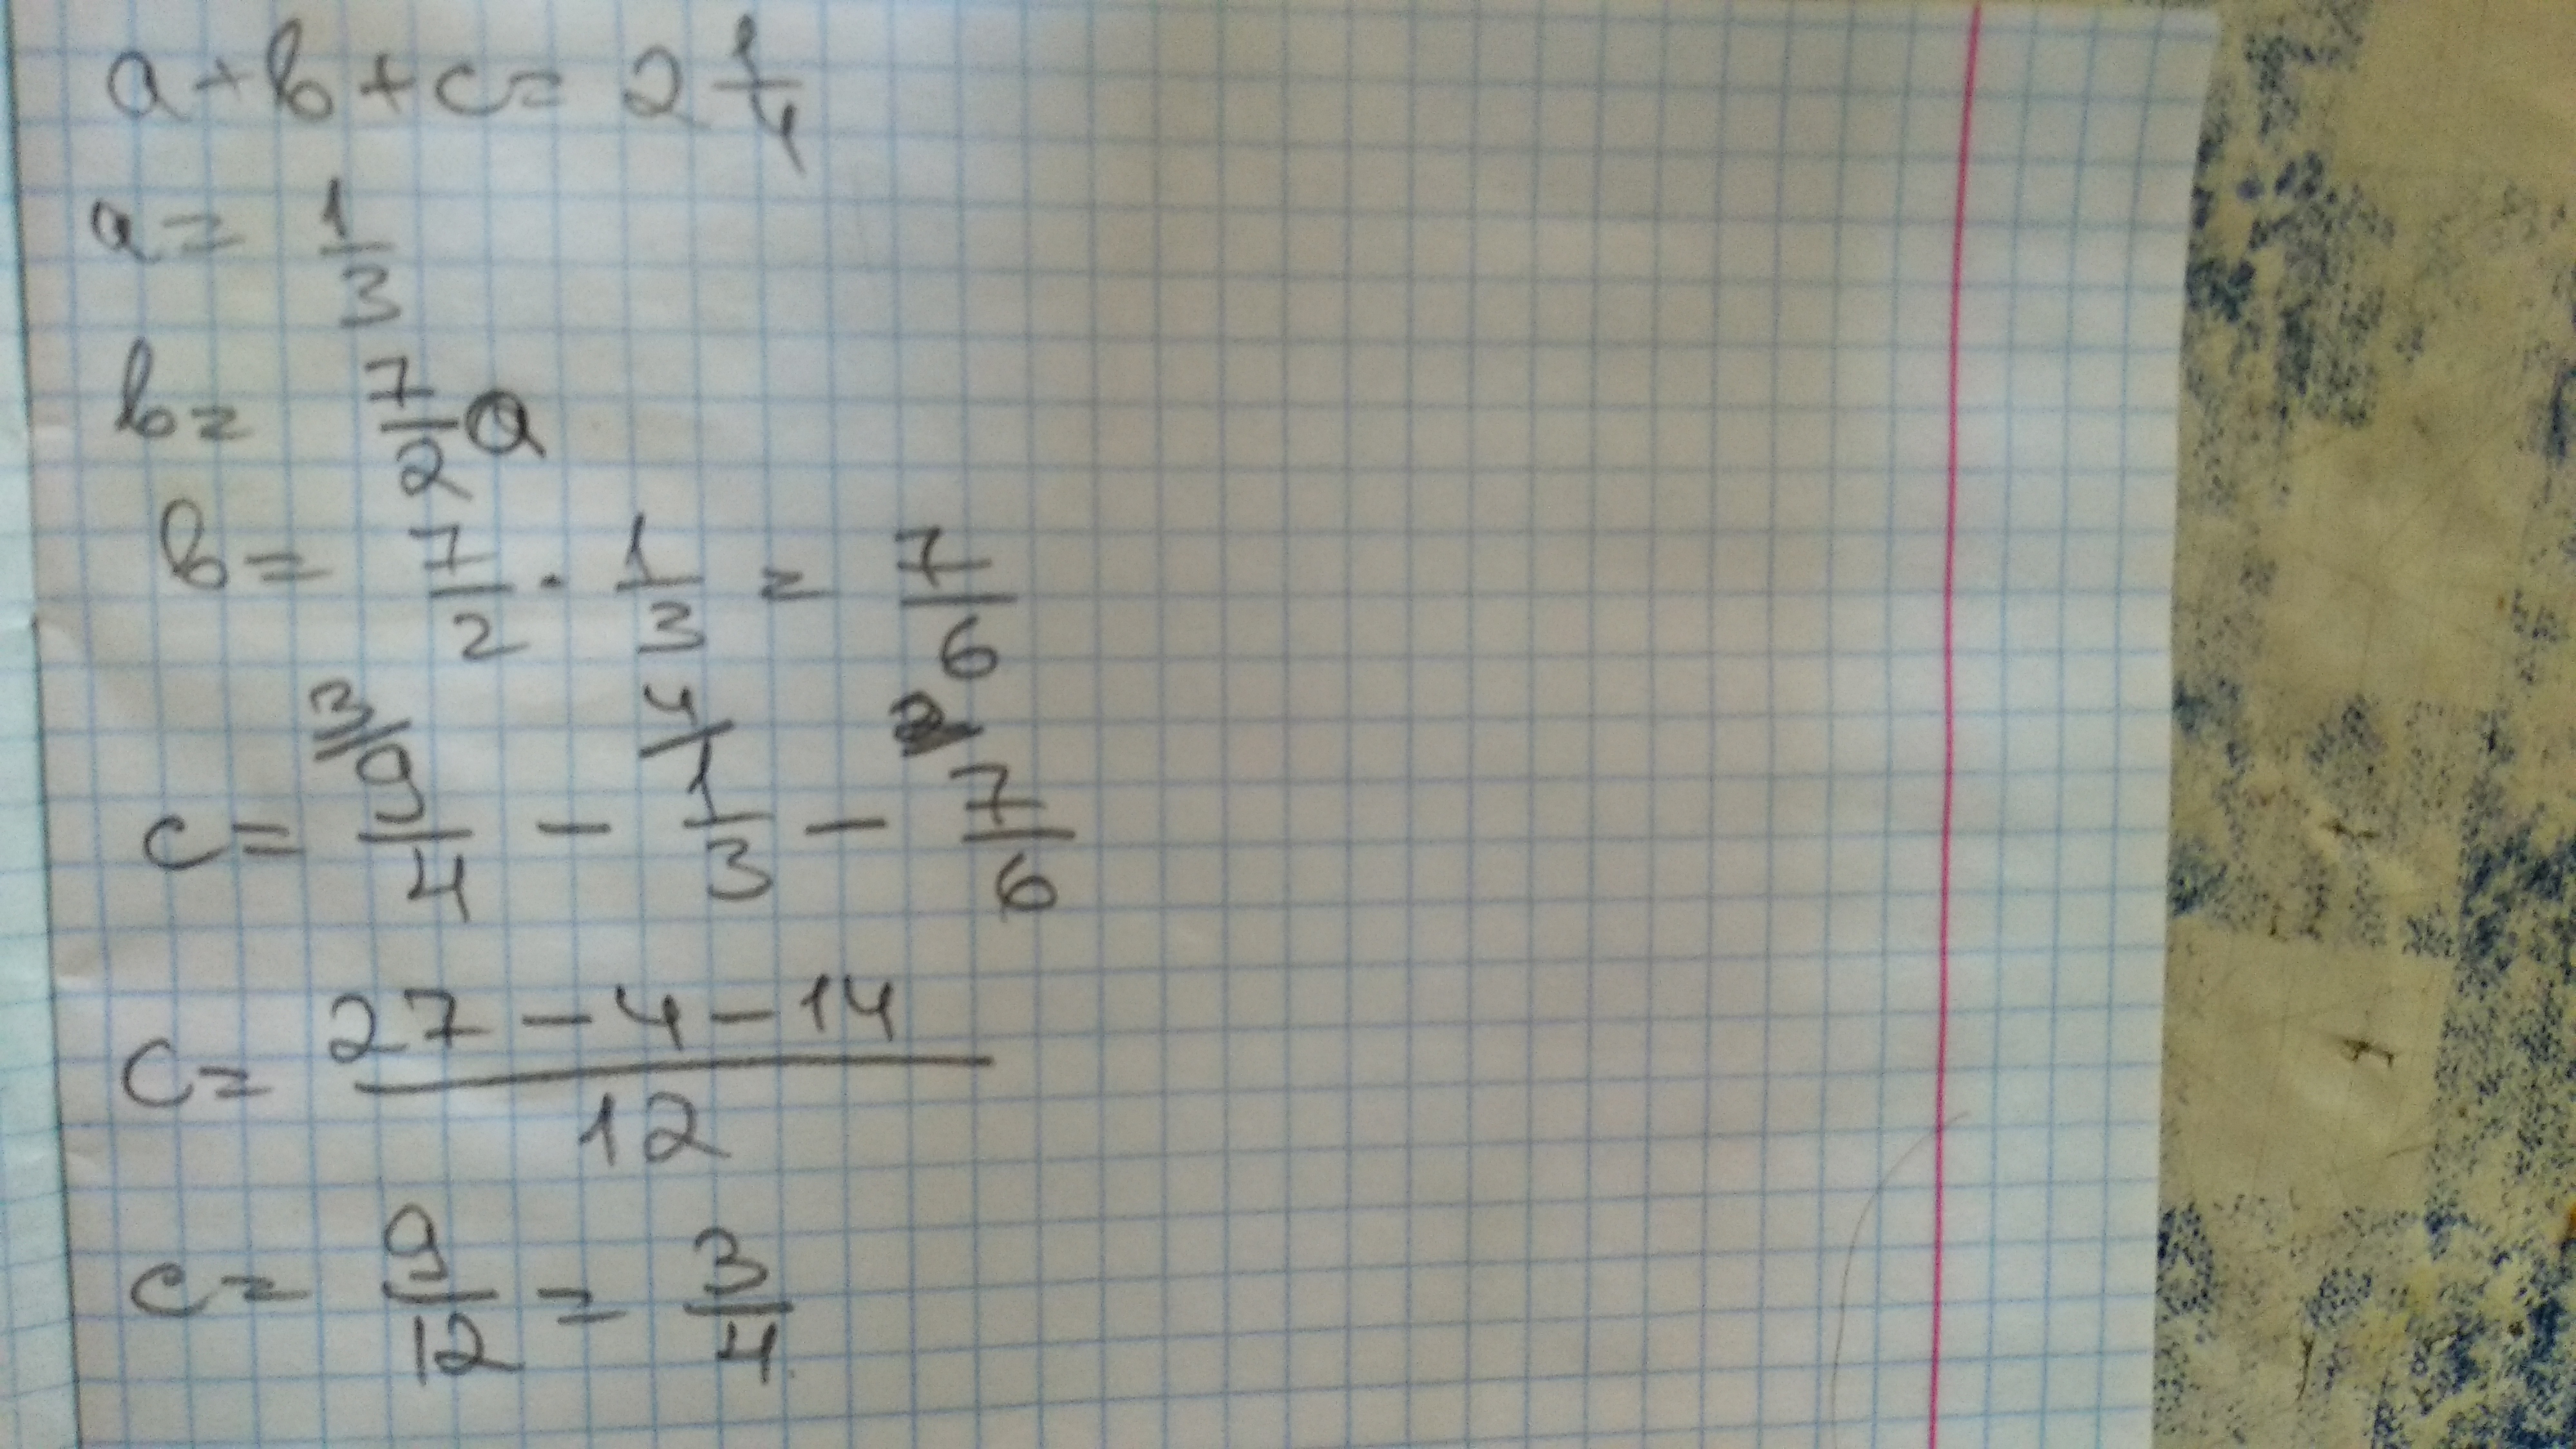 a+b+c= 2 1/4
a= 1/3
b= 7/2 a
b= 7/2 · 1/3 = 7/6
c= 3/ 9/4 − 4/ 1/3 − 2/ 7/6
c= (27−4−14)/12
c= 9/12 = 3/4